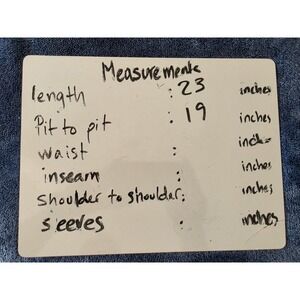 Measurements
length : 23 inches
Pit to pit : 19 inches
waist : inches
inseam : inches
Shoulder to shoulder: inches
sleeves : inches